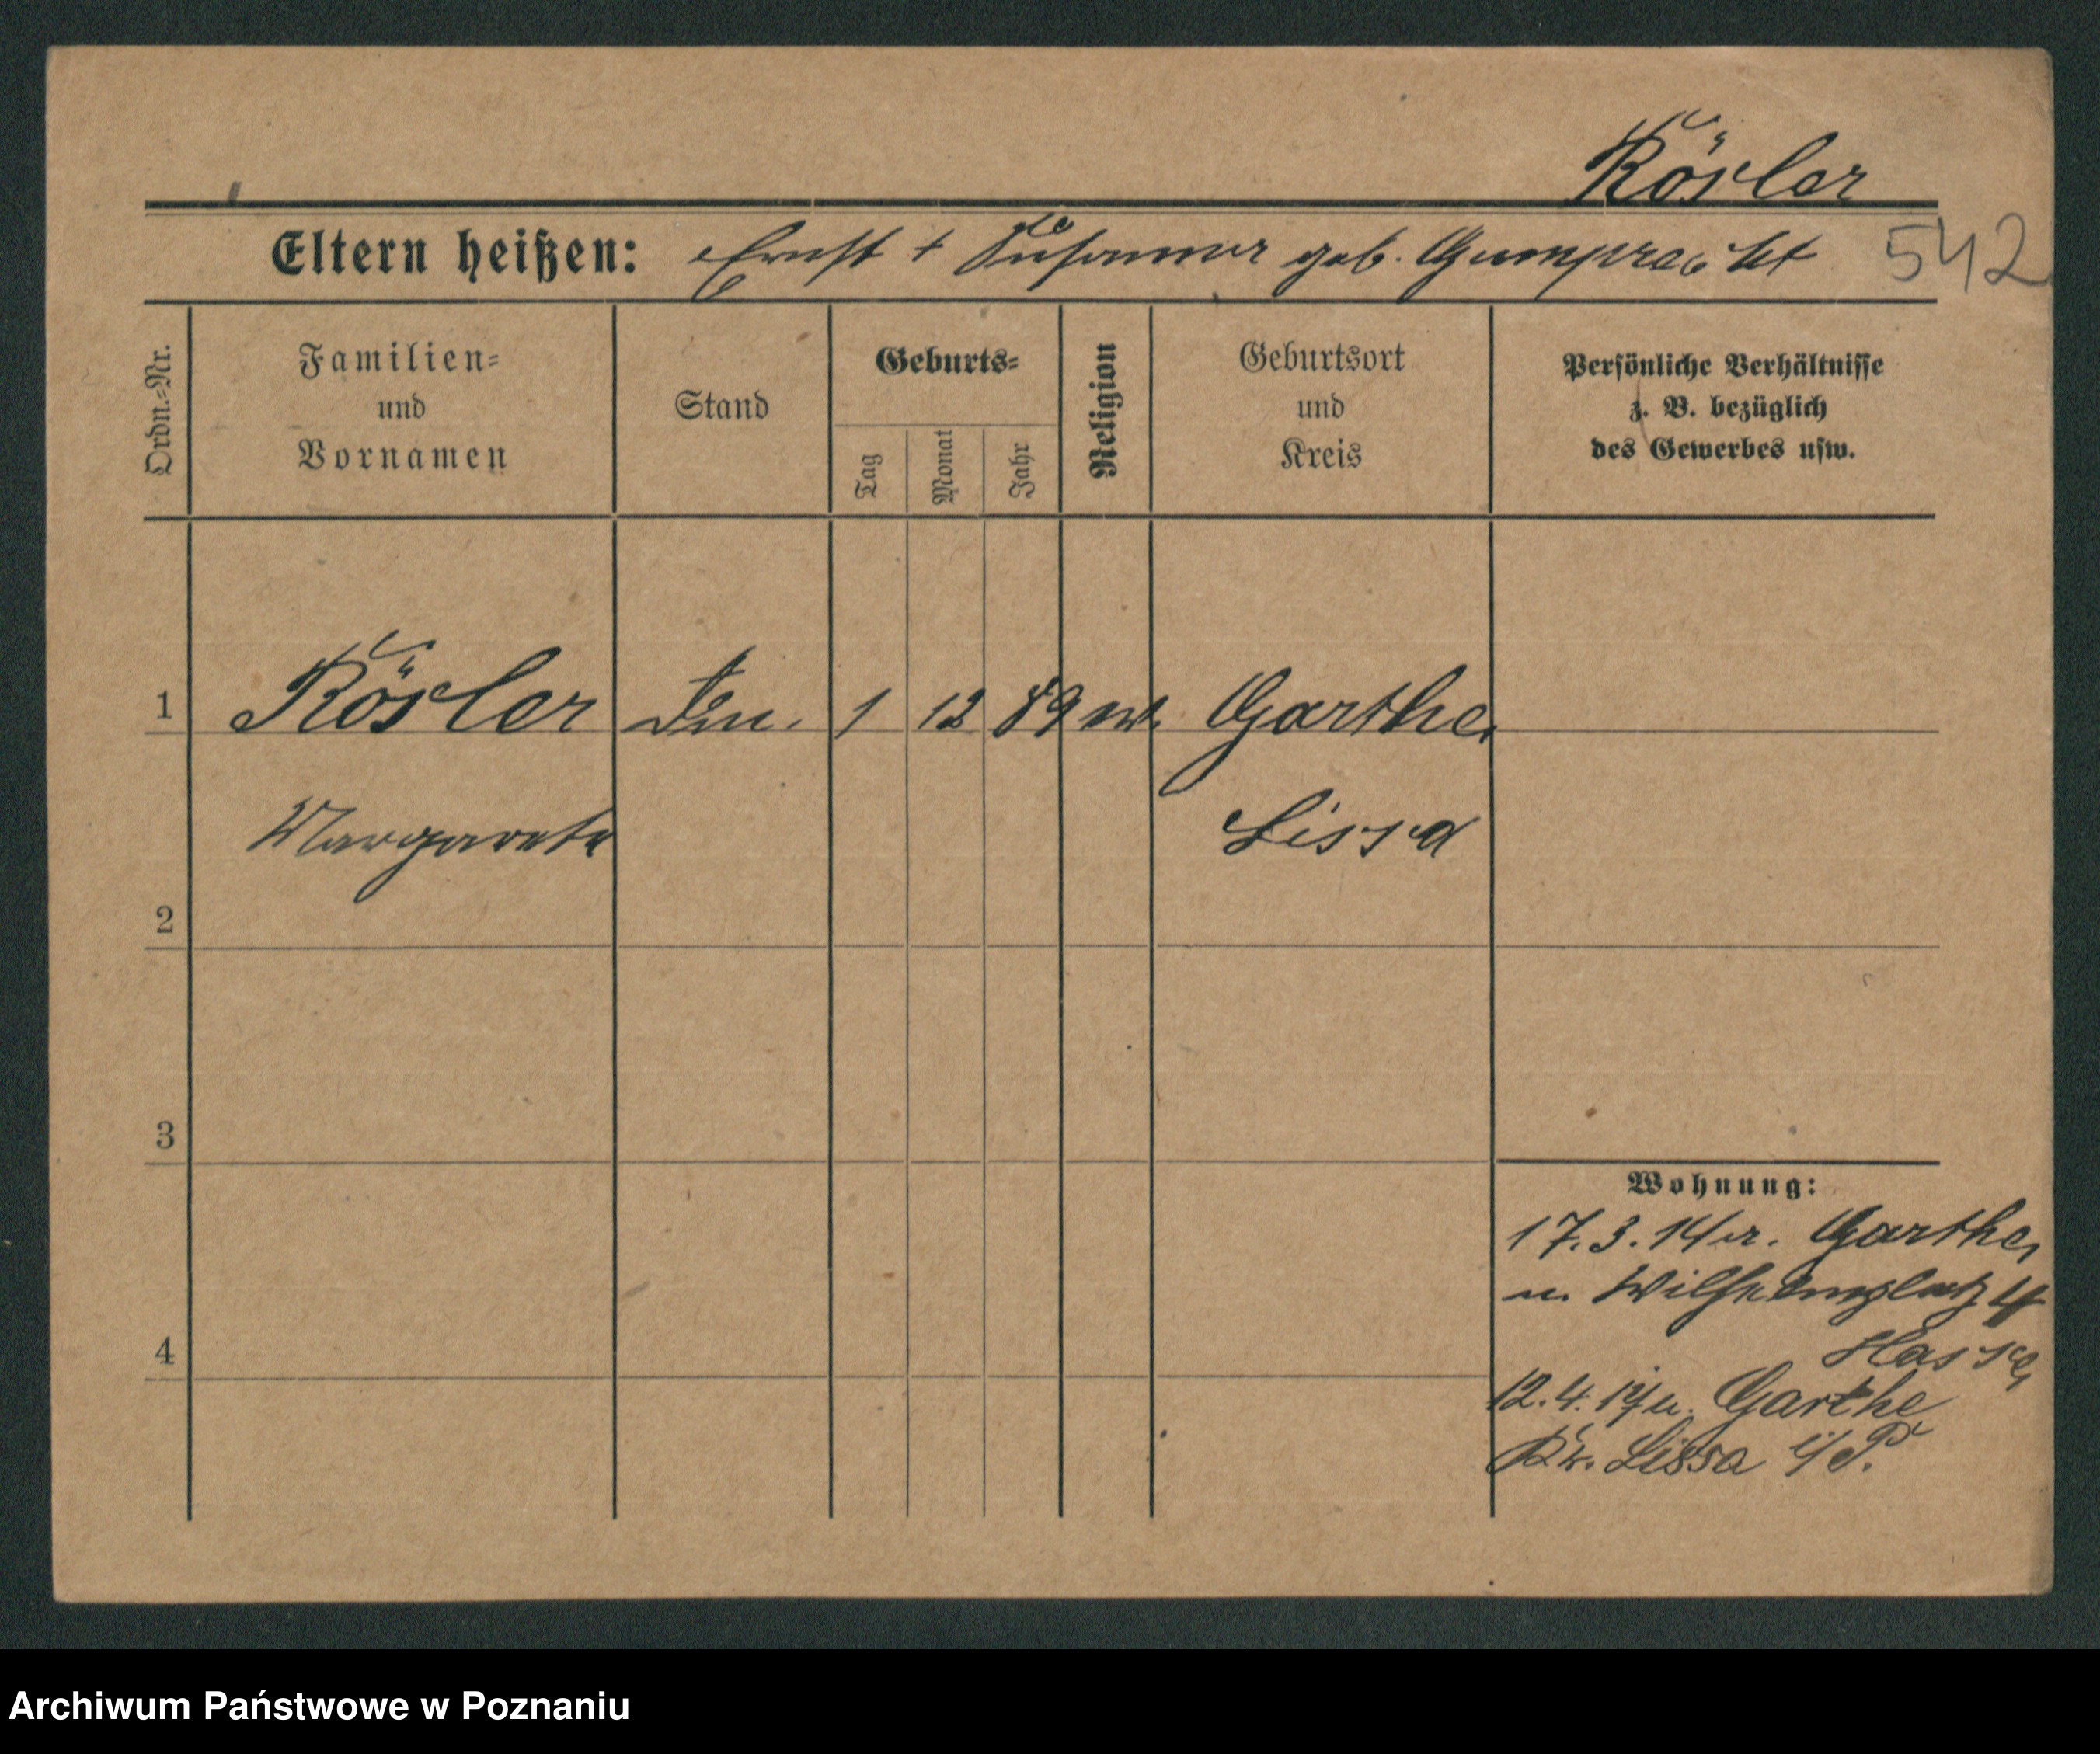 Rösler
Eltern heißen: Ernst + Susanna geb. Gumprecht 542
Ordn.-Nr. Familien- und Vornamen Stand Geburts- Tag Monat Jahr Religion Geburtsort und Kreis Persönliche Verhältnisse z. B. bezüglich des Gewerbes usw.
1 Rösler 1 12 89 Garthe,
Margarete Lissa
2
3
Wohnung:
17.3.14 Garthe,
n. Wilhelmplatz 4
4 Hasse,
12.4. Garthe
Kr. Lissa i/P.
Archiwum Państwowe w Poznaniu